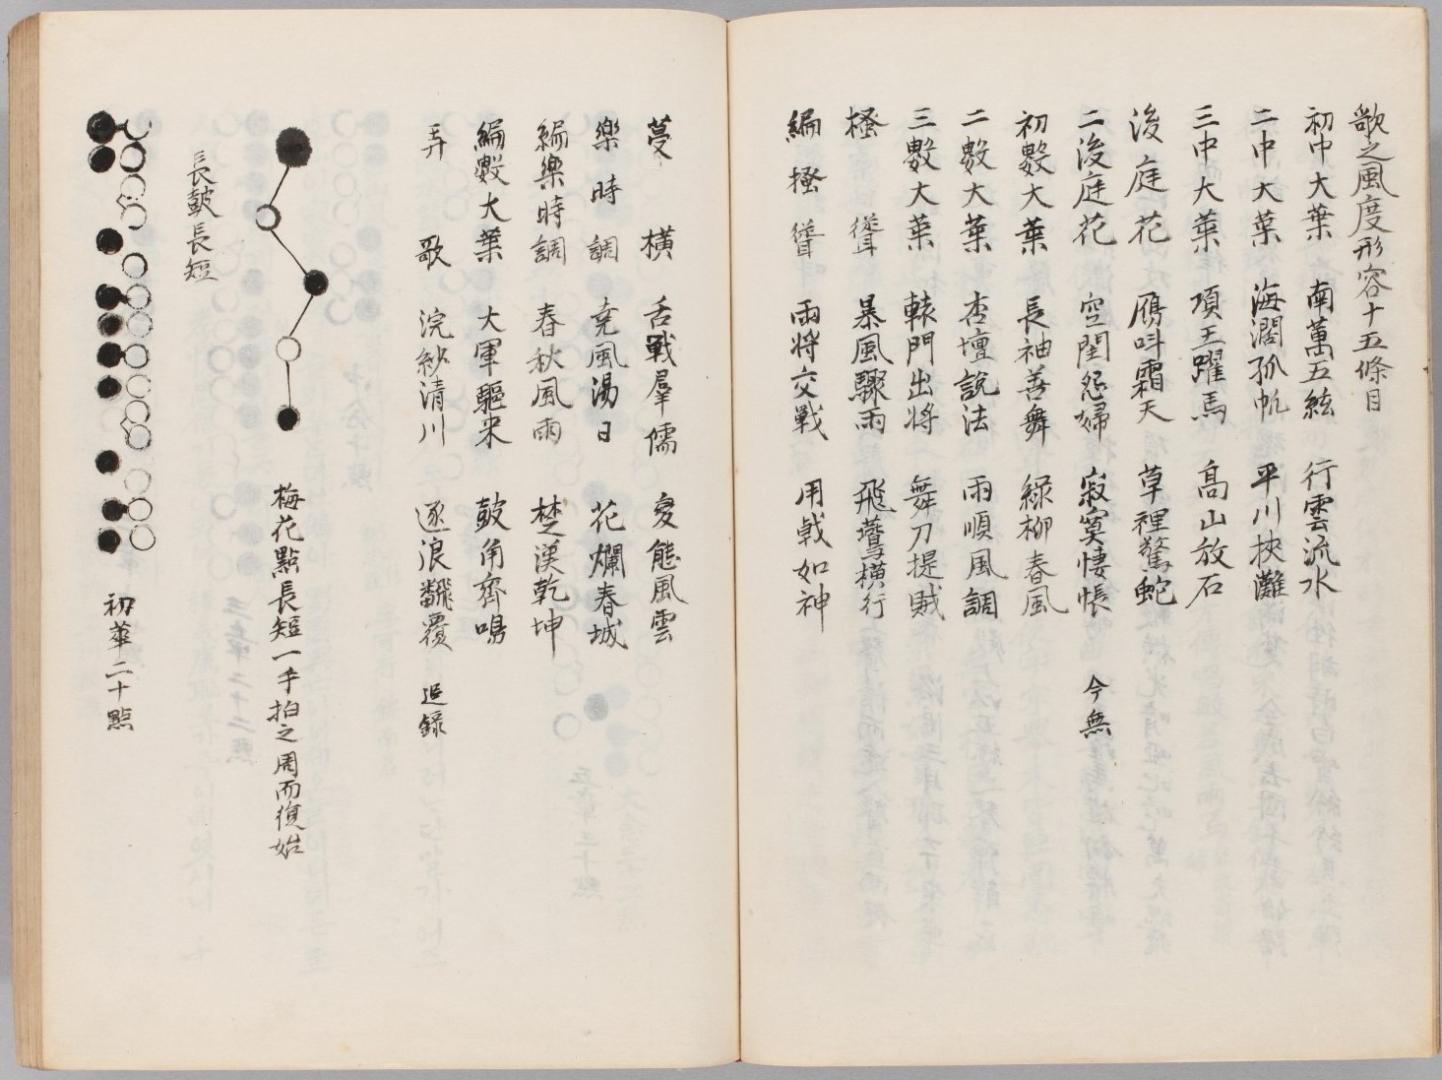 歌之風度形容十五條目
初中大葉 南薰五絃 行雲流水
二中大葉 海濶孤帆 平川挾灘
三中大葉 項王躍馬 高山放石
後庭花 鴈呌霜天 草裡驚蛇
二後庭花 空閨怨婦 寂寞悽悵 今無
初數大葉 長袖善舞 綠柳春風
二數大葉 杏壇說法 雨順風調
三數大葉 轅門出將 舞刀提賊
搔聳 暴風驟雨 飛鶯橫行
編搔聳 兩將交戰 用戟如神
蔓橫 舌戰羣儒 變態風雲
樂時調 堯風湯日 花爛春城
編樂時調 春秋風雨 楚漢乾坤
編數大葉 大軍驅來 皷角齊鳴
弄歌 浣紗清川 逐浪飜覆 追錄
梅花點長短一手拍之周而復始
長皷長短
初章二十點